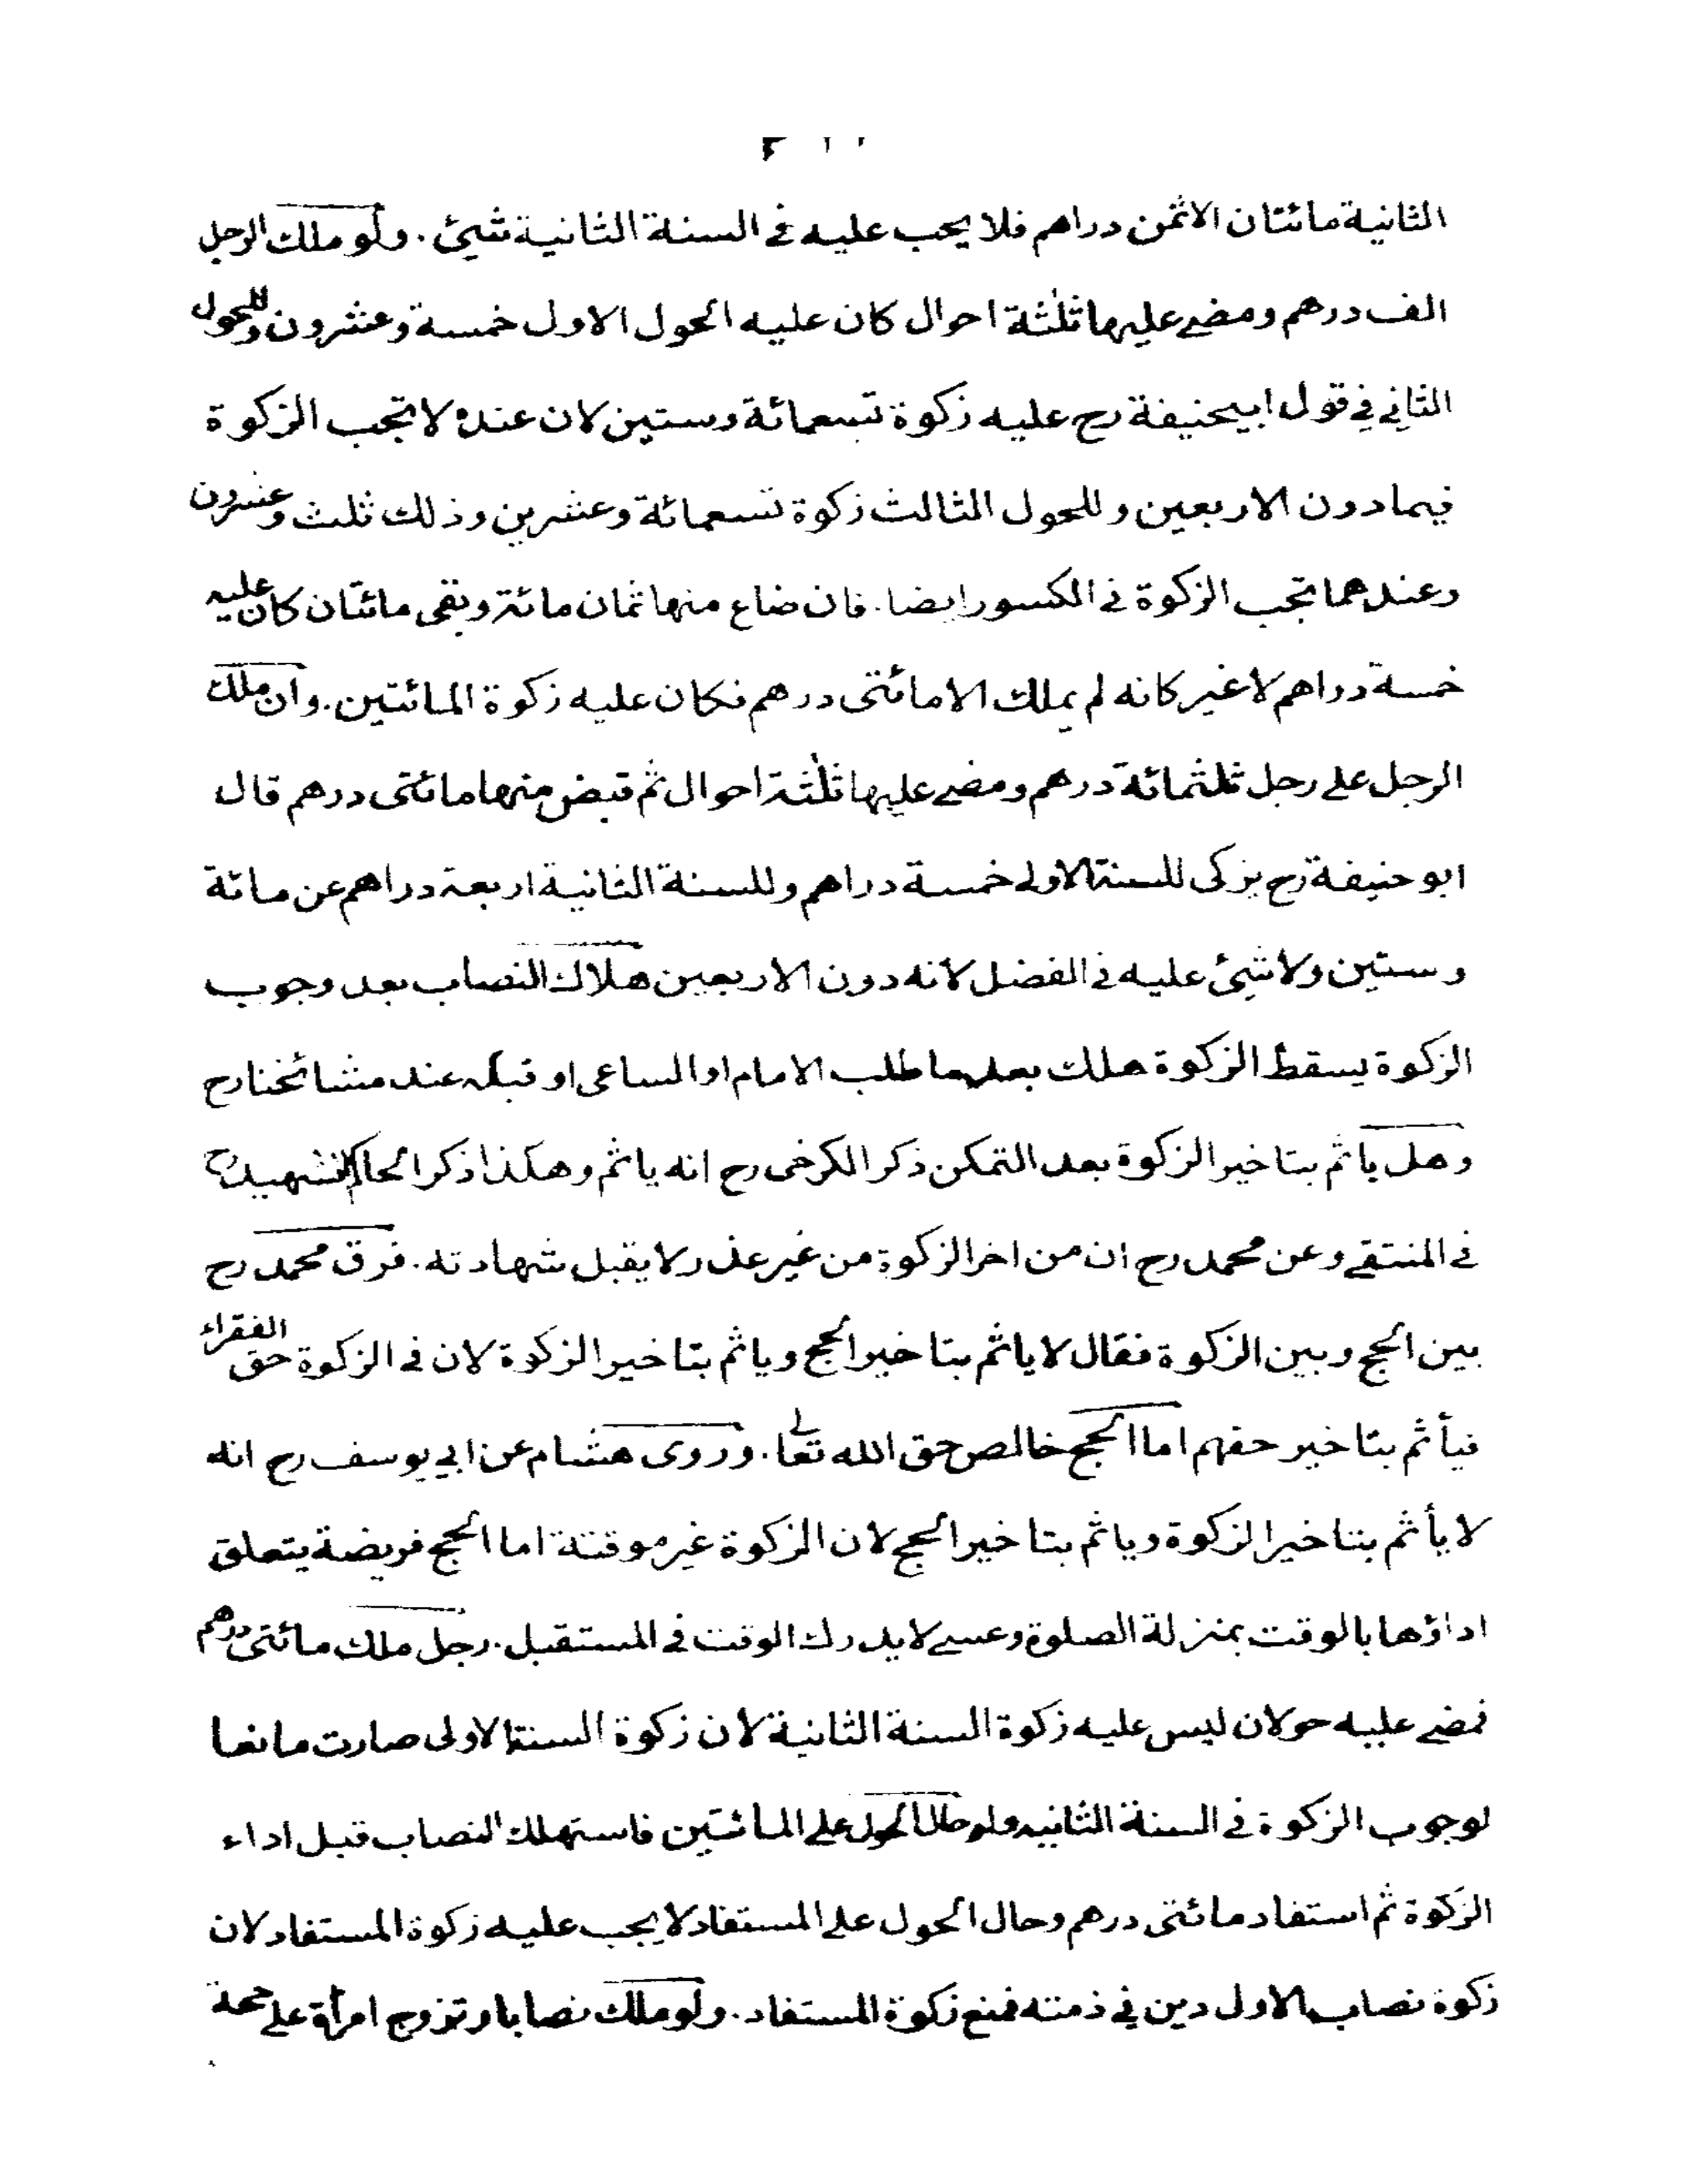 الثانية مائتان الاثمن دراهم فلا يجب عليه فى السنة الثانية شيئ. ولو ملك الرجل
الف درهم ومضى عليها ثلثة احوال كان عليه الحول الاول خمسة وعشرون وللحول
الثانى فى قول ابيحنيفة رح عليه زكوة تسعمائة وستين لان عنده لا تجب الزكوة
فيما دون الاربعين وللحول الثالث زكوة تسعمائة وعشرين وذلك ثلث وعشرون
وعندهما تجب الزكوة فى الكسور ايضا. فان ضاع منها ثمان مائة وبقى مائتان كان عليه
خمسة دراهم لا غير كانه لم يملك الا مائتى درهم فكان عليه زكوة المائتين. وان ملك
الرجل على رجل ثلثمائة درهم ومضى عليها ثلثة احوال ثم قبض منها مائتى درهم قال
ابو حنيفة رح يزكى للسنة الاولى خمسة دراهم وللسنة الثانية اربعة دراهم عن مائة
وستين ولا شيئ عليه فى الفضل لانه دون الاربعين هلاك النصاب بعد وجوب
الزكوة يسقط الزكوة هلك بعد ما طلب الامام او الساعى او قبله عند مشائخنا رح
وهل ياثم بتاخير الزكوة بعد التمكن ذكر الكرخى رح انه ياثم وهكذا ذكر الحاكم الشهيد رح
فى المنتقى وعن محمد رح ان من اخر الزكوة من غير عذر لا يقبل شهادته. فرق محمد رح
بين الحج وبين الزكوة فقال لا ياثم بتاخير الحج وياثم بتاخير الزكوة لان فى الزكوة حق الفقراء
فيأثم بتاخير حقهم اما الحج خالص حق الله تعالى. وروى هشام عن ابي يوسف رح انه
لا يأثم بتاخير الزكوة وياثم بتاخير الحج لان الزكوة غير موقتة اما الحج فريضة يتعلق
اداؤها بالوقت بمنزلة الصلوة وعسى لا يدرك الوقت فى المستقبل. رجل ملك مائتى درهم
فمضى عليه حولان ليس عليه زكوة السنة الثانية لان زكوة السنة الاولى صارت مانعا
لوجوب الزكوة فى السنة الثانيه ولو حال الحول على المائتين فاستهلك النصاب قبل اداء
الزكوة ثم استفاد مائتى درهم وحال الحول على المستفاد لا يجب عليه زكوة المستفاد لان
زكوة نصاب الاول دين فى ذمته فمنع زكوة المستفاد. ولو ملك نصابا وتزوج امرأة على